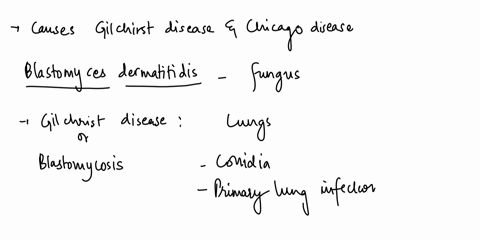 → Causes Gilchirst disease & Chicago disease
Blastomyces dermatitidis - fungus
→ Gilchrist disease : Lungs
or
Blastomycosis - Conidia
- Primary lung infection